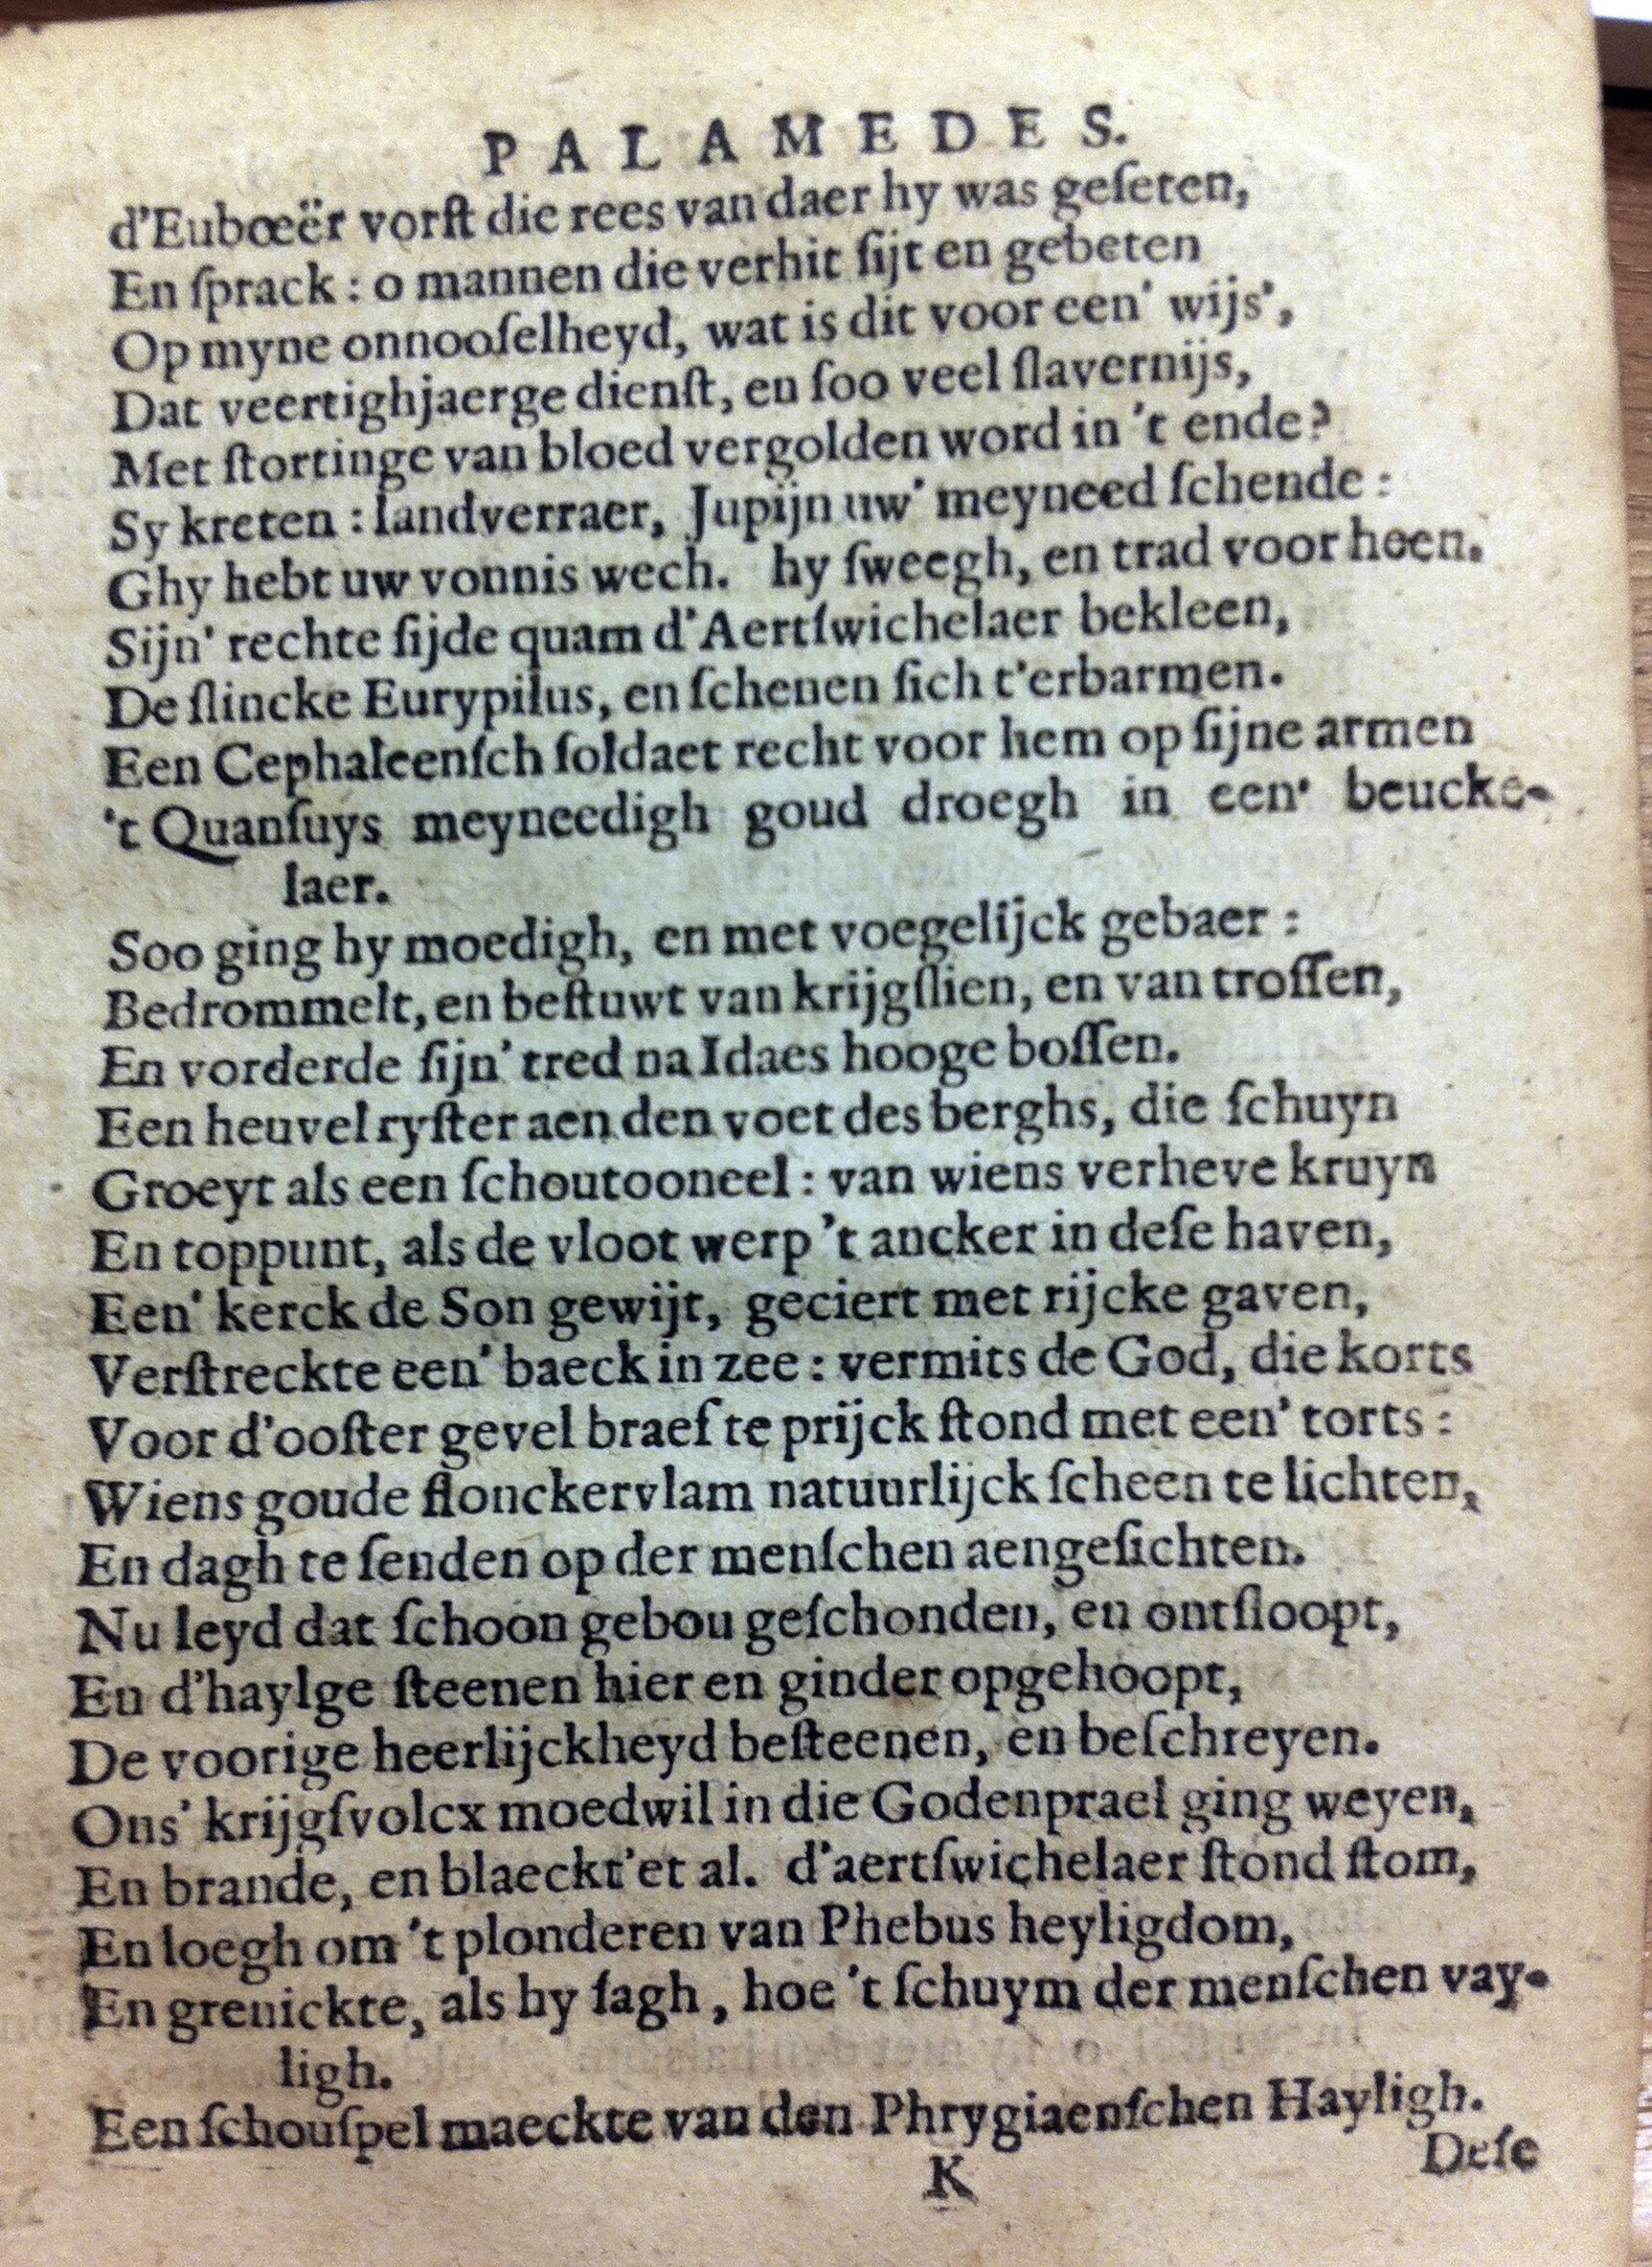 PALAMEDES.
d'Eubœër vorſt die rees van daer hy was geſeten,
En ſprack : o mannen die verhit ſijt en gebeten
Op myne onnooſelheyd, wat is dit voor een' wijs',
Dat veertighjaerge dienſt, en ſoo veel ſlavernijs,
Met ſtortinge van bloed vergolden word in 't ende?
Sy kreten : landverraer, Jupijn uw' meyneed ſchende :
Ghy hebt uw vonnis wech. hy ſweegh, en trad voor heen.
Sijn' rechte ſijde quam d'Aertſwichelaer bekleen,
De ſlincke Eurypilus, en ſchenen ſich t'erbarmen.
Een Cephaleenſch ſoldaet recht voor hem op ſijne armen
't Quanſuys meyneedigh goud droegh in een' beucke-
laer.
Soo ging hy moedigh, en met voegelijck gebaer :
Bedrommelt, en beſtuwt van krijgſlien, en van troſſen,
En vorderde ſijn' tred na Idaes hooge boſſen.
Een heuvel ryſter aen den voet des berghs, die ſchuyn
Groeyt als een ſchoutooneel : van wiens verheve kruyn
En toppunt, als de vloot werp 't ancker in deſe haven,
Een' kerck de Son gewijt, geciert met rijcke gaven,
Verſtreckte een' baeck in zee : vermits de God, die korts
Voor d'ooſter gevel braef te prijck ſtond met een' torts :
Wiens goude flonckervlam natuurlijck ſcheen te lichten,
En dagh te ſenden op der menſchen aengeſichten.
Nu leyd dat ſchoon gebou geſchonden, en ontſloopt,
En d'haylge ſteenen hier en ginder opgehoopt,
De voorige heerlijckheyd beſteenen, en beſchreyen.
Ons' krijgſvolcx moedwil in die Godenprael ging weyen,
En brande, en blaeckt'et al. d'aertſwichelaer ſtond ſtom,
En loegh om 't plonderen van Phebus heyligdom,
En grenickte, als hy ſagh, hoe 't ſchuym der menſchen vay-
ligh.
Een ſchouſpel maeckte van den Phrygiaenſchen Hayligh.
K
Deſe